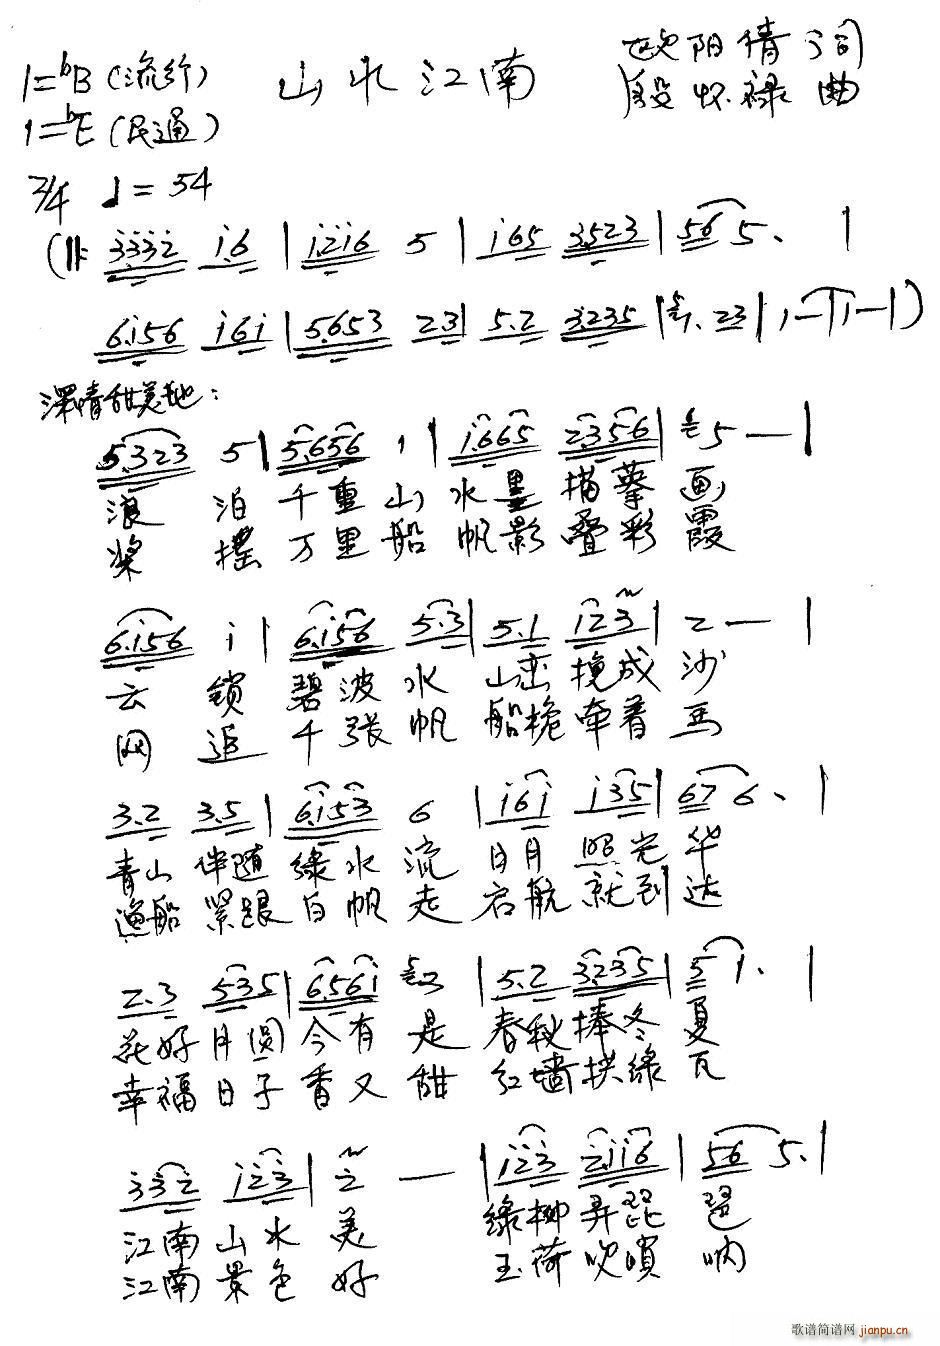 1=ᵇB(流行) 山水江南 欧阳倩 词
1=ᵇE(民通) 段怀禄 曲
2/4 ♩=54
(‖: 3332 i.6 | i2i6 5 | i65 3523 | 56 5. |
6.i56 i6i | 5.653 23 | 5.2 3235 | 1. 23 | 1 — | 1 — )
深情甜美地:
5.323 5 | 5.656 1 | i.665 2356 | 5 — |
浪 泊 千重山 水墨描摹 画
桨 摇 万里船 帆影叠彩 霞
6.i56 i | 6.i56 5.3 | 5.1 i23 | 2 — |
云 锁 碧波水 山峦挽成 沙
网 追 千张帆 船桅牵着 马
3.2 3.5 | 6.i53 6 | i6i i35 | 67 6. |
青山伴随绿水流 日月照光华
渔船紧跟白帆走 启航就到达
2.3 535 | 6.56i 3 | 5.2 3235 | 5 1. |
花好月圆今有是 春秋捧冬夏
幸福日子香又甜 红墙拱绿瓦
332 i23 | 2 — | i23 2.ii6 | 56 5. |
江南山水美 绿柳弄琵琶
江南景色好 玉荷吹唢呐
歌谱简谱网 jianpu.cn